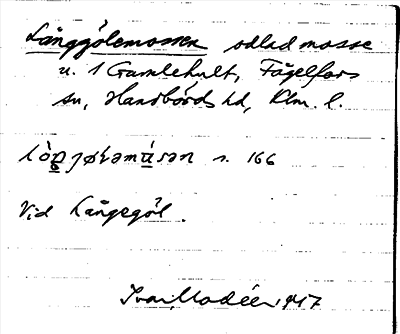 Långgölemossen odlad mosse
u. 1 Gamlehult, Fågelfors
sn, Handbörds hd, Klm. l.
s. 166
Vid Långegöl.
Ivar Modéer 1947